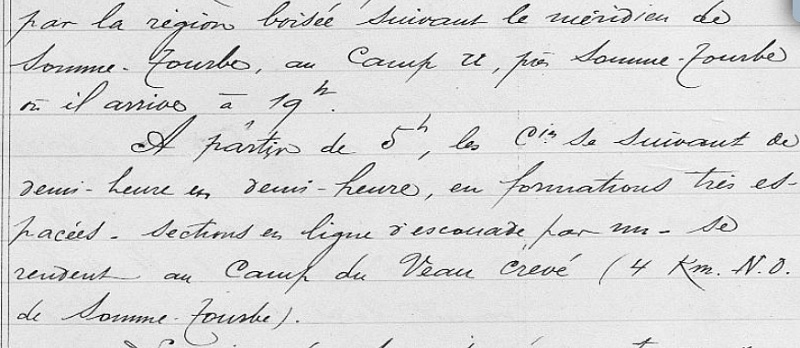 par la région boisée suivant le méridien de
Somme-Tourbe, au Camp U, près Somme-Tourbe
où il arrive à 19h.
A partir de 5h, les Cies se suivant de
demi-heure en demi-heure, en formations très es-
pacées - sections en ligne d'escouade par un - se
rendent au Camp du Veau Crevé (4 Km. N.O.
de Somme-Tourbe).